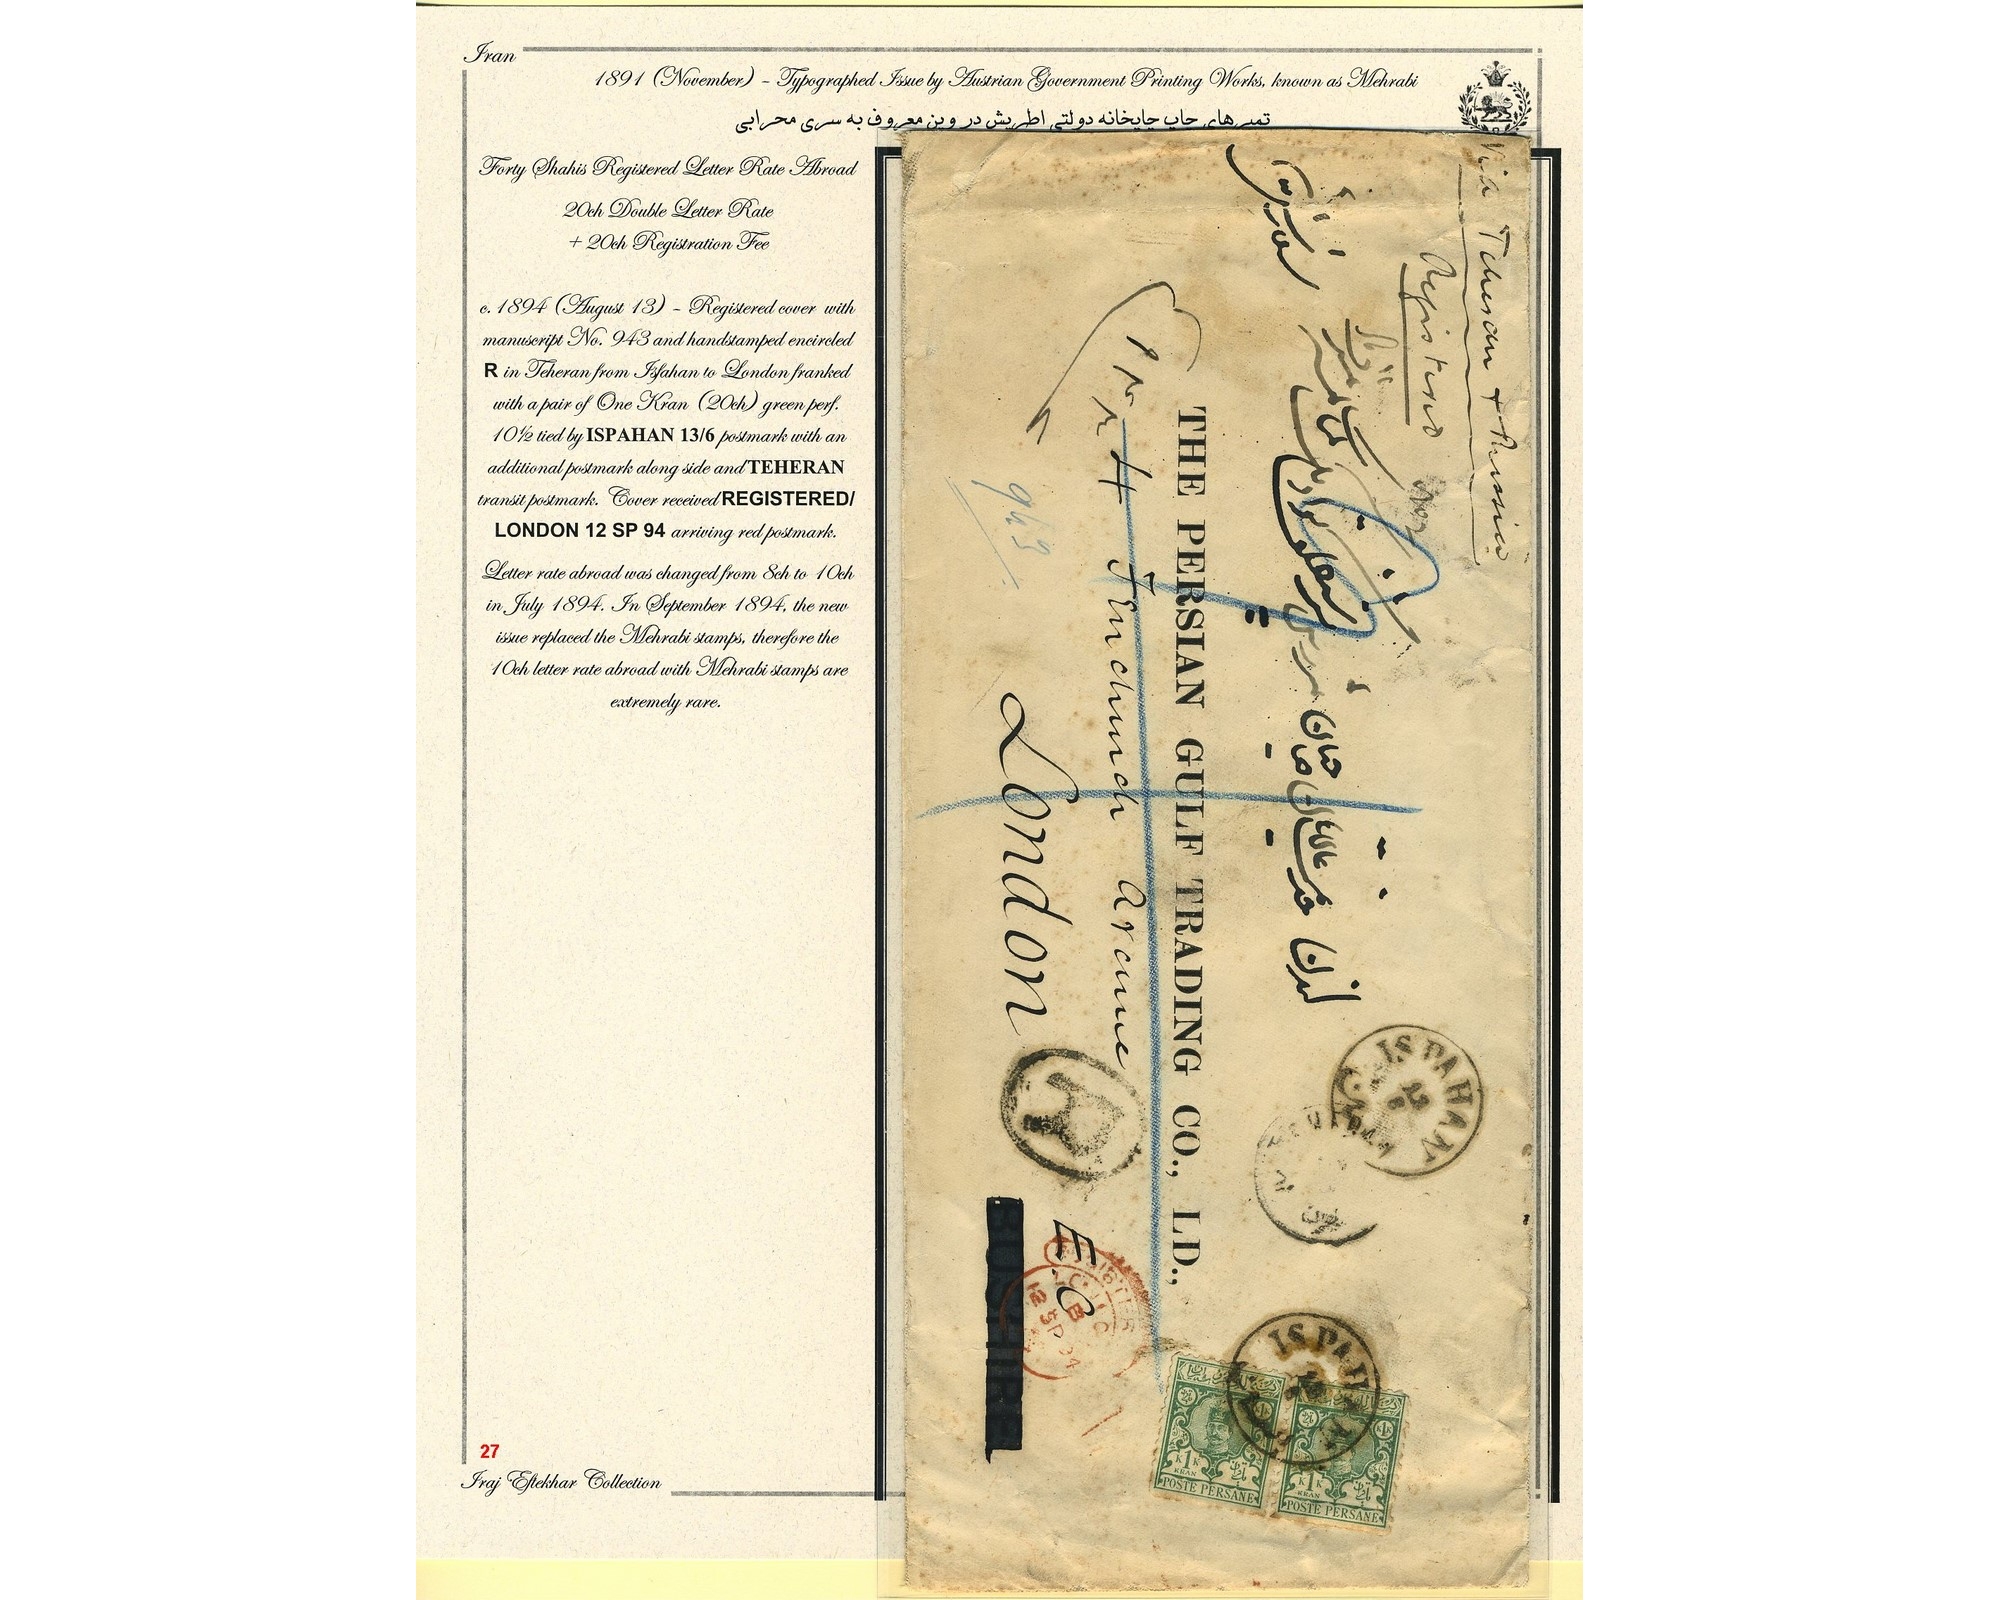 Iran
1891 (November) - Typographed Issue by Austrian Government Printing Works, known as Mehrabi
تمبرهای چاپ چاپخانه دولتی اطریش در وین معروف به سری محرابی
Forty Shahis Registered Letter Rate Abroad
20ch Double Letter Rate
+ 20ch Registration Fee
c. 1894 (August 13) - Registered cover with
manuscript No. 943 and handstamped encircled
R in Teheran from Isfahan to London franked
with a pair of One Kran (20ch) green perf.
10½ tied by ISPAHAN 13/6 postmark with an
additional postmark along side and TEHERAN
transit postmark. Cover received REGISTERED/
LONDON 12 SP 94 arriving red postmark.
Letter rate abroad was changed from 8ch to 10ch
in July 1894. In September 1894, the new
issue replaced the Mehrabi stamps, therefore the
10ch letter rate abroad with Mehrabi stamps are
extremely rare.
27
Iraj Eftekhar Collection
Via Teheran & Russia
Registered
لندن
THE PERSIAN GULF TRADING CO., LD.,
Fenchurch Avenue
943
London
E.C
R
ISPAHAN
ISPAHAN
12 SP 94
1K 1K
KRAN
POSTE PERSANE
1K 1K
KRAN
POSTE PERSANE